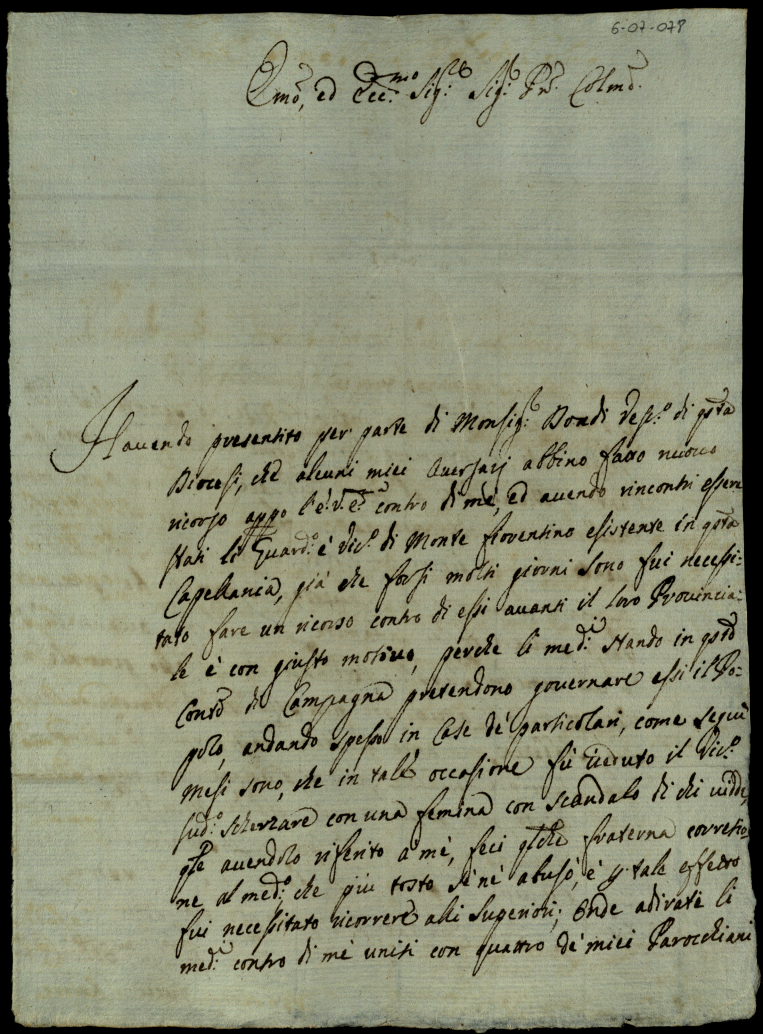 6-07-078
Emo, ed Ecc.mo Sig.re Sig.re Pne. Colmo.
Havendo presentito per parte di Monsig.r Bondi Vesc.o di qsta
Diocesi, che alcuni miei Aversarj abbino fatto nuovo
ricorso appo l'E. V. Ema contro di mè, ed avendo rincontri essere
stati li Guard.o è Vic.o di Monte fiorentino esistente in qsta
Capellania, già che forsi molti giorni sono fui necessi-
tato fare un ricorso contro di essi avanti il loro Provincia-
le è con giusto motivo, perche li med.i stando in qsto
Conto di Campagna pretendono governare essi il Po-
polo, andando spesso in Case de' particolari, come seguì
mesi sono, che in tale occasione fù veduto il Vic.o
sud.o scherzare con una femina con scandalo di chi vidde,
qle avendolo riferito à mè, feci qche fraterna corretio-
ne al med.o che più tosto sè nè abusò, è p tale effetto
fui necessitato ricorrere alli Superiori; Onde adirati li
med.i contro di mè uniti con quattro de' miei Parocchiani